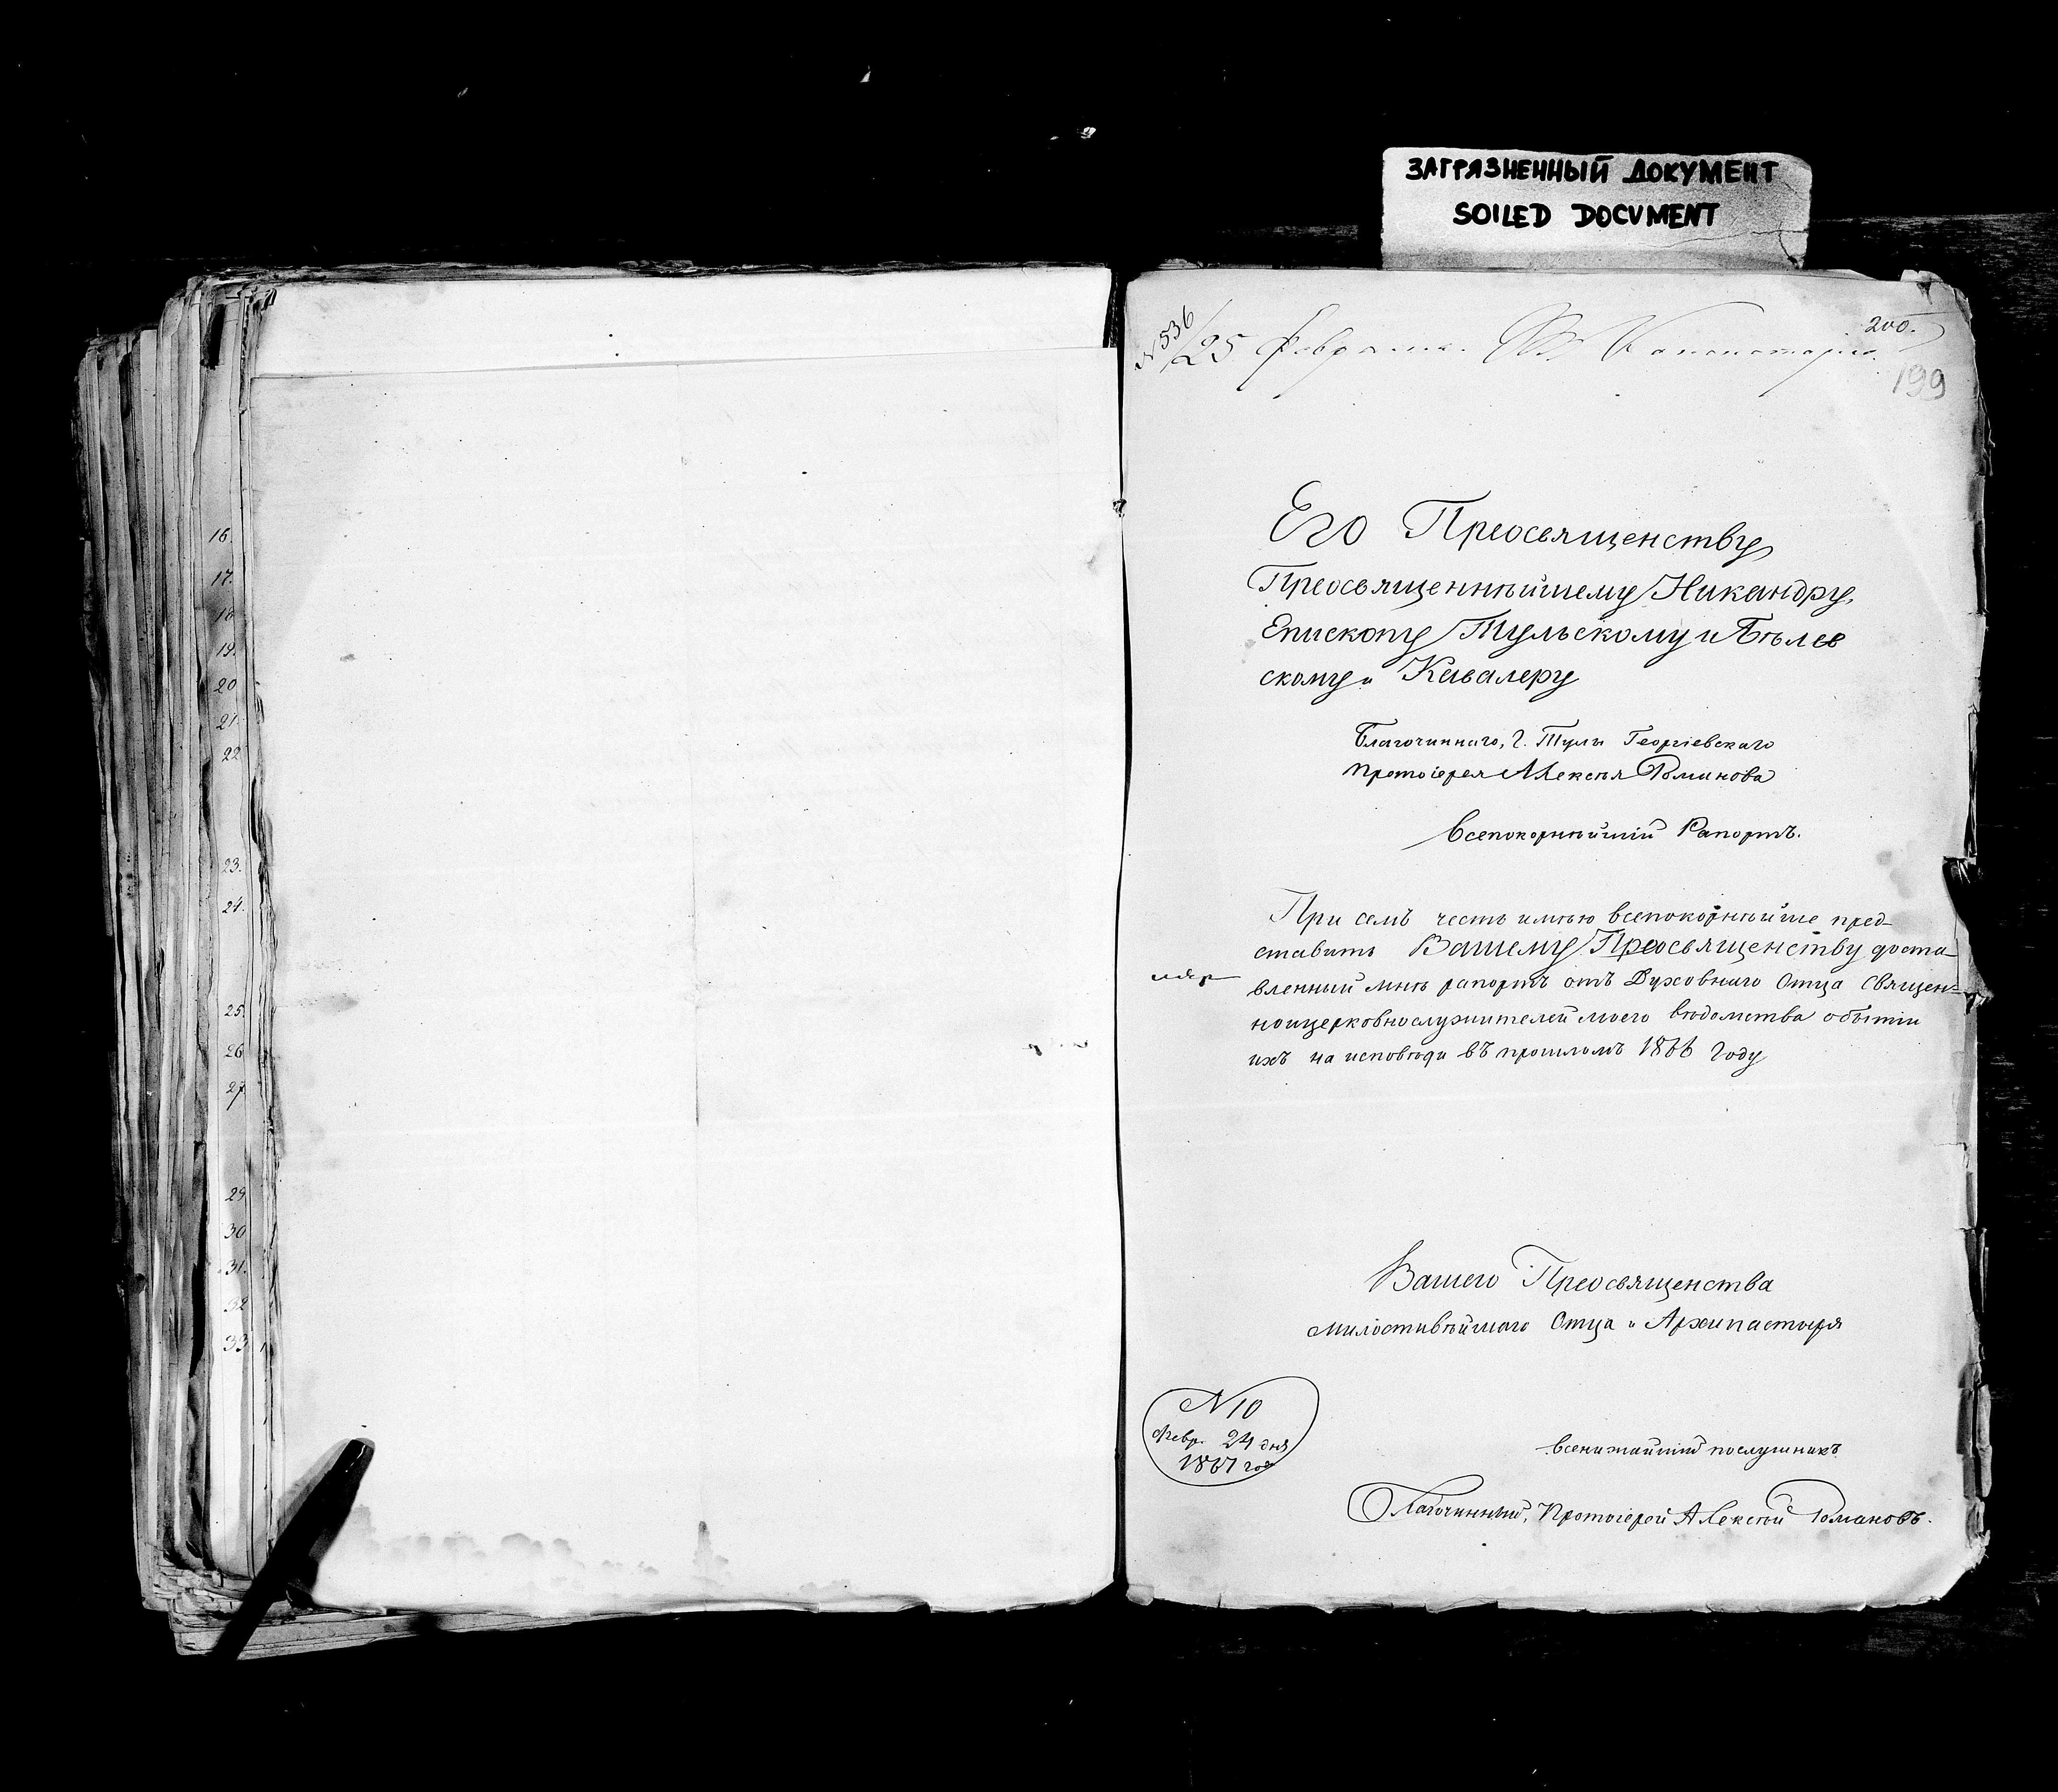 ЗАГРЯЗНЕННЫЙ ДОКУМЕНТ
SOILED DOCUMENT
200.
N 536
25 февраля. Въ Консисторію.
199
Его Преосвященству
Преосвященнѣйшему Никандру,
Епископу Тульскому и Бѣлев
скому и Кавалеру
Благочиннаго, г. Тулы Георгіевскаго
протоіерея Алексѣя Романова
Всепокорнѣйшій Рапортъ.
При семъ честь имѣю всепокорнѣйше пред-
ставить Вашему Преосвященству доста-
вленный мнѣ рапортъ отъ Духовнаго Отца Священ-
ноцерковнослужителей моего вѣдомства о бытіи
ихъ на исповѣди въ прошломъ 1866 году
Вашего Преосвященства
милостивѣйшаго Отца и Архипастыря
N 10
Февр. 24 дня
1867 года
всенижайшій послушникъ
Благочинный, Протоіерей Алексѣй Романовъ.
16.
17.
18
19.
20
21.
22
23.
24.
25.
26
27
29
30
31.
32
33